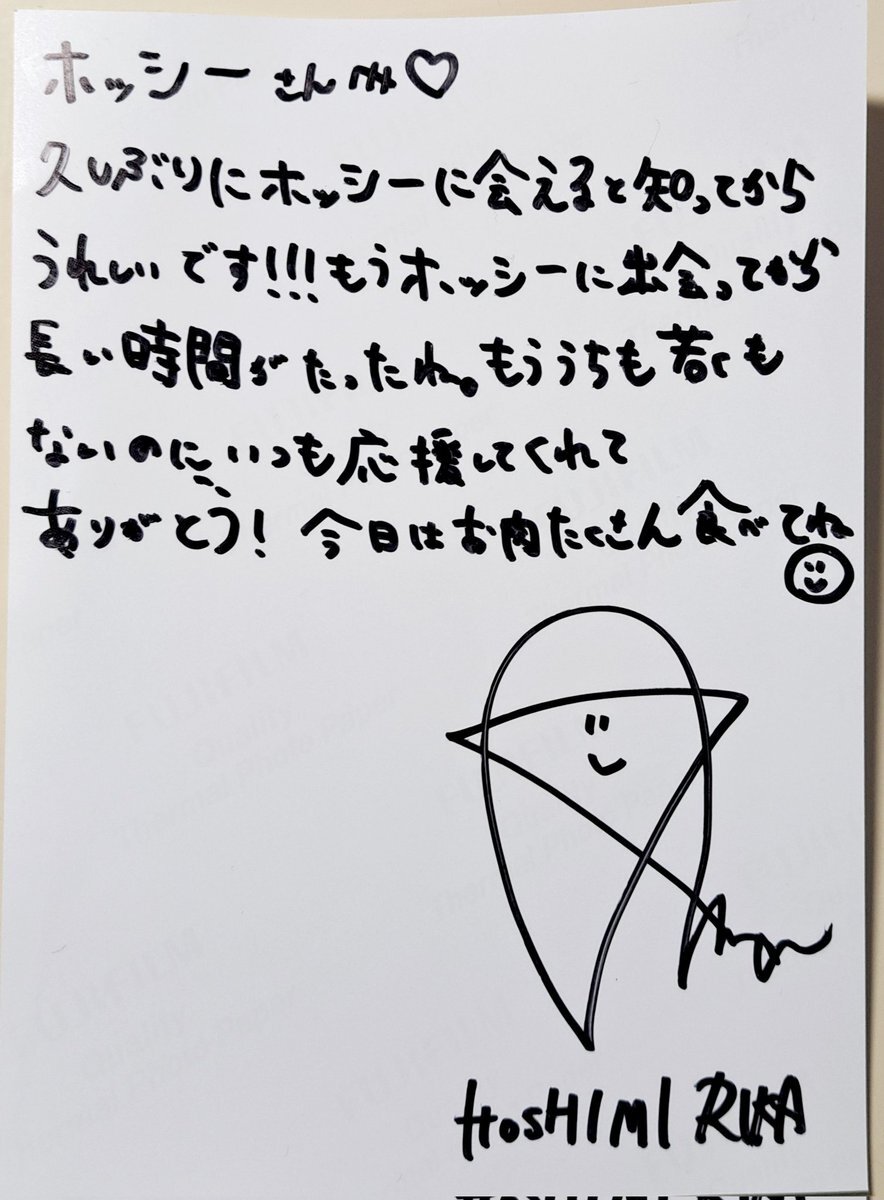 ホッシーさんへ♡
久しぶりにホッシーに会えると知ってから
うれしいです!!!もうホッシーに出会ってから
長い時間がたったね。もううちも若くも
ないのに、いつも応援してくれて
ありがとう!今日はお肉たくさん食べてね
HOSHIMI RIKA
FUJIFILM
Quality
Thermal Photo Paper
FUJIFILM